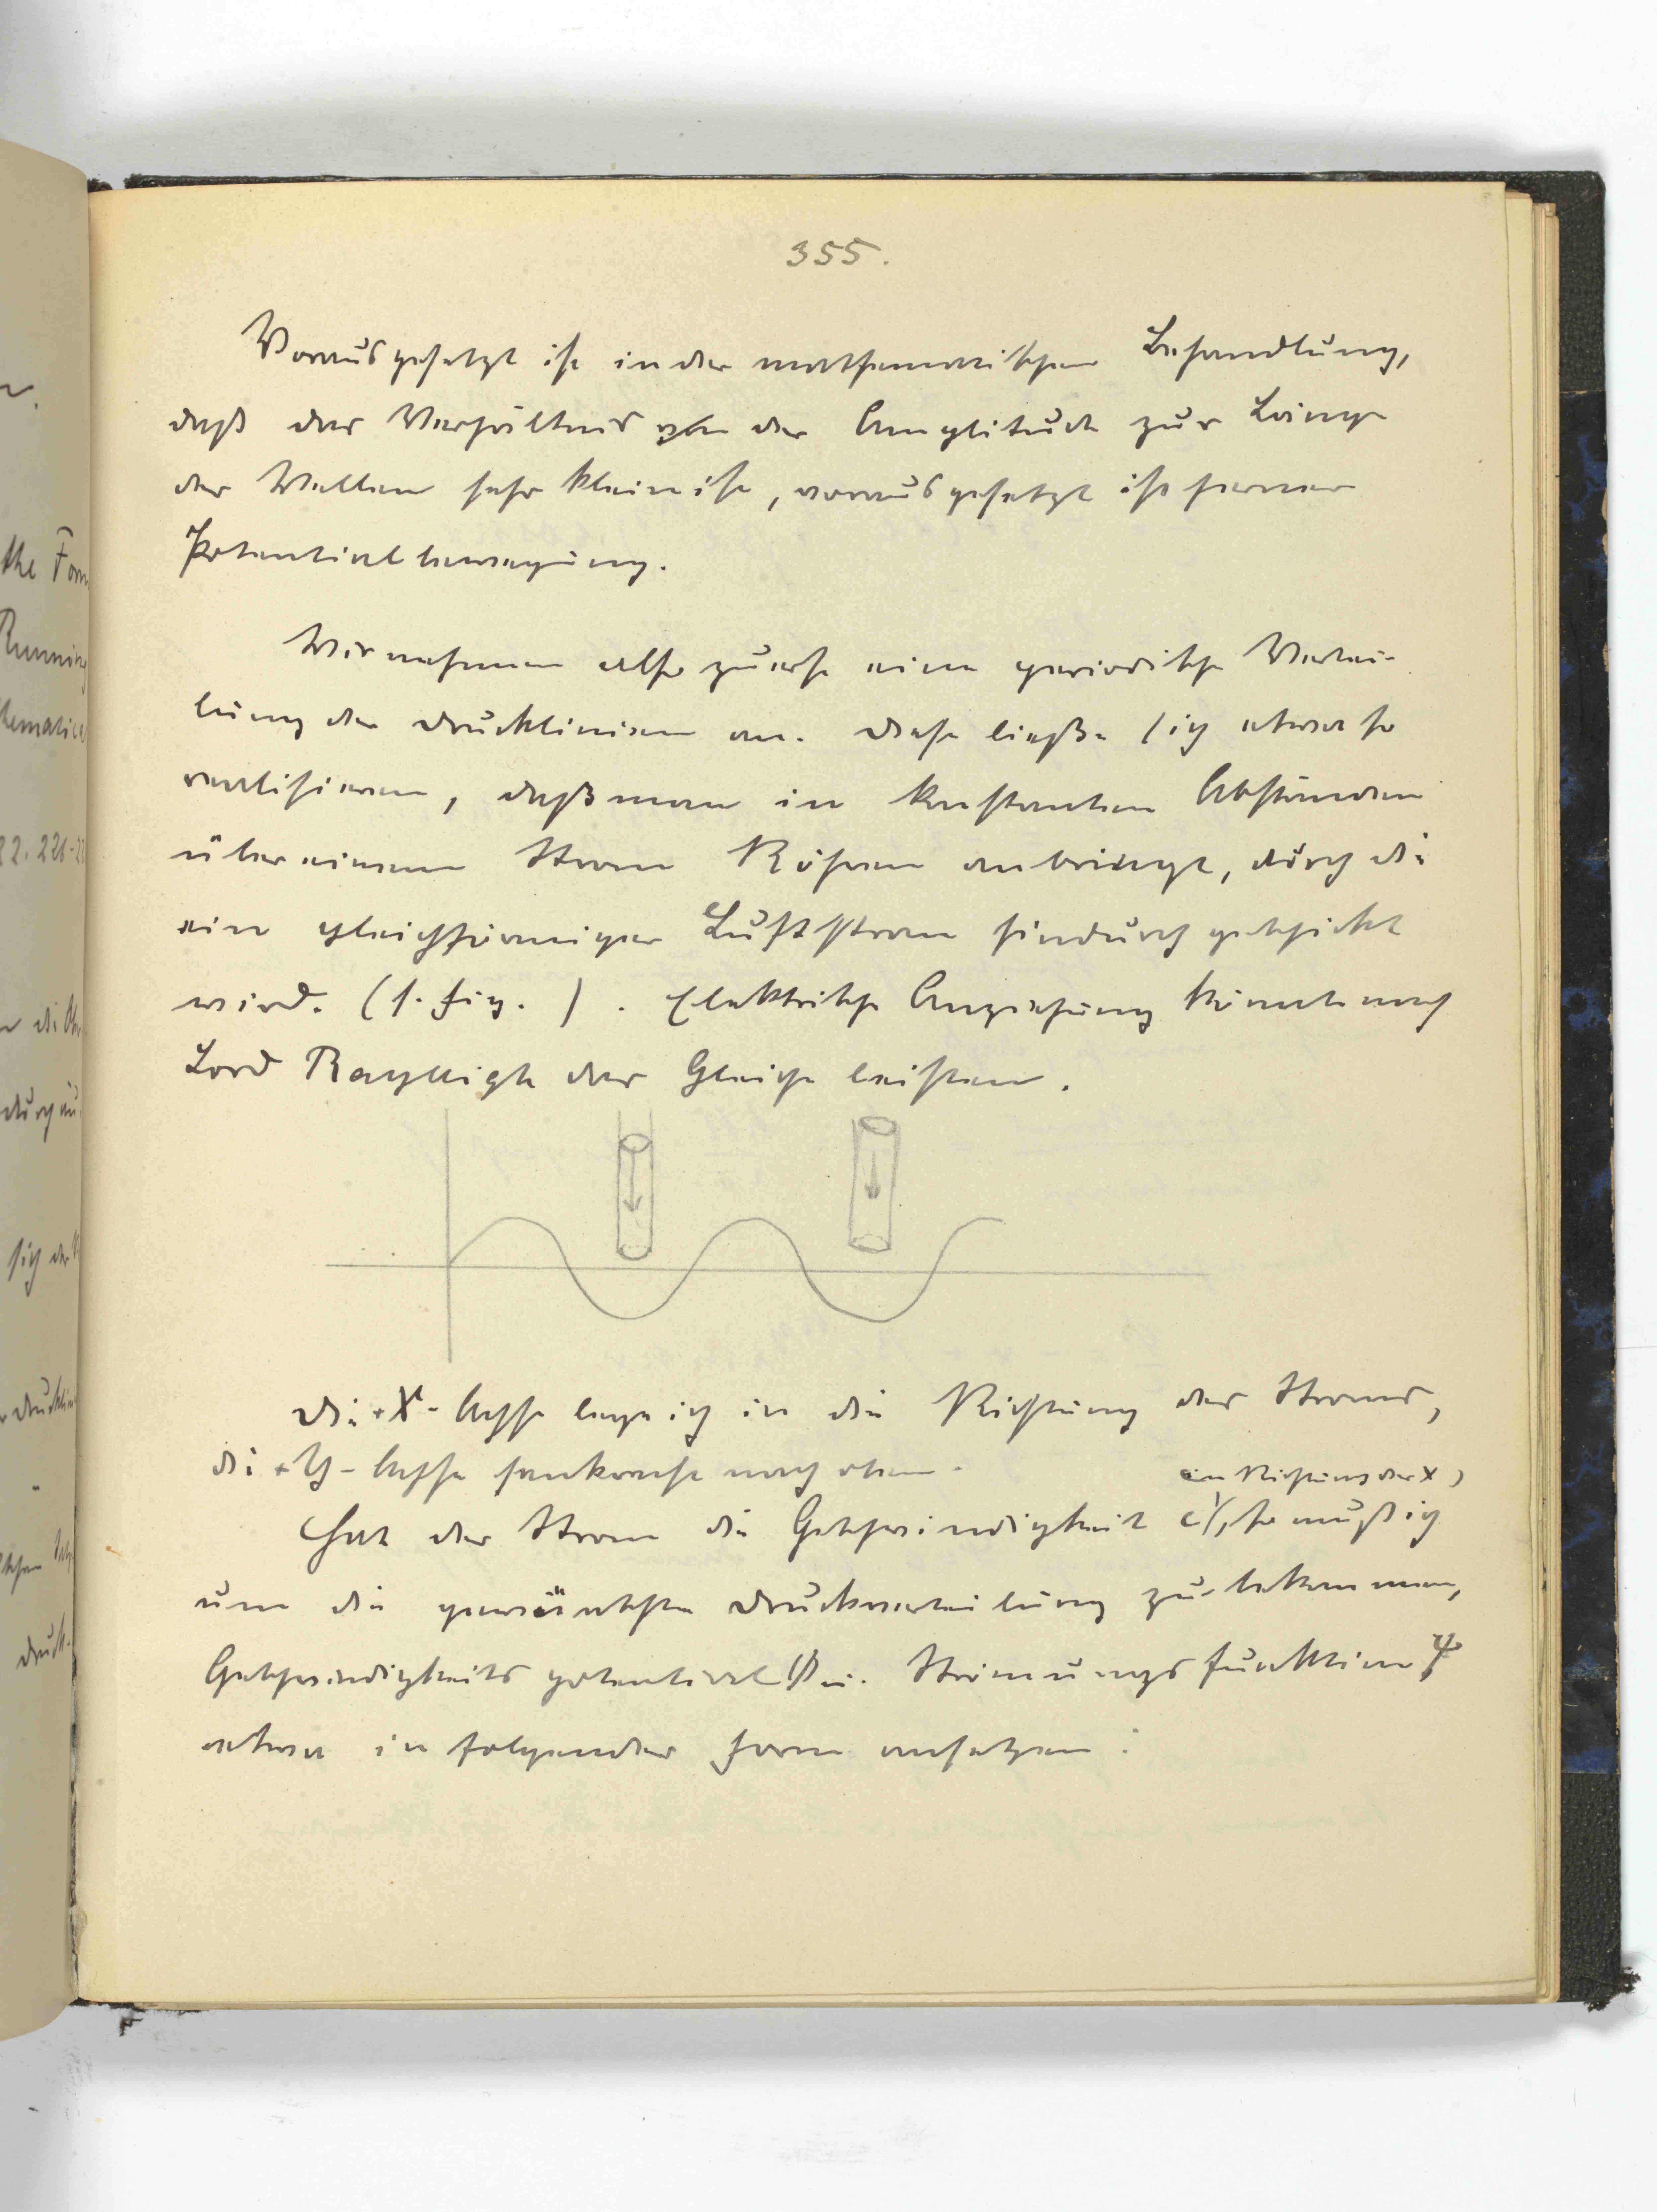 355.
Vorausgesetzt ist in der mathematischen Behandlung,
daß das Verhältnis der Amplitude zur Länge
der Wellen sehr klein ist, vorausgesetzt ist ferner
Potentialbewegung.
Wir nehmen also zuerst eine periodische Vertei-
lung der Drucklinien an. Diese ließe sich etwa so
realisieren, daß man in konstanten Abständen
über einem Strom Röhren anbringt, durch die
ein gleichförmiger Luftstrom hindurch geschickt
wird. (s. Fig. ). Elektrische Anziehung könnte nach
Lord Rayleigh das Gleiche leisten.
Die +X-Achse lege ich in die Richtung des Stroms,
die +Y-Achse senkrecht nach oben.
in Richtung der X
Hat der Strom die Geschwindigkeit c, so muß ich
um die gewünschte Druckverteilung zu bekommen,
Geschwindigkeitspotential Φ u. Strömungsfunktion Ψ
etwa in folgender Form ansetzen:
the Form
Running
22. 226-22
durch
sich der